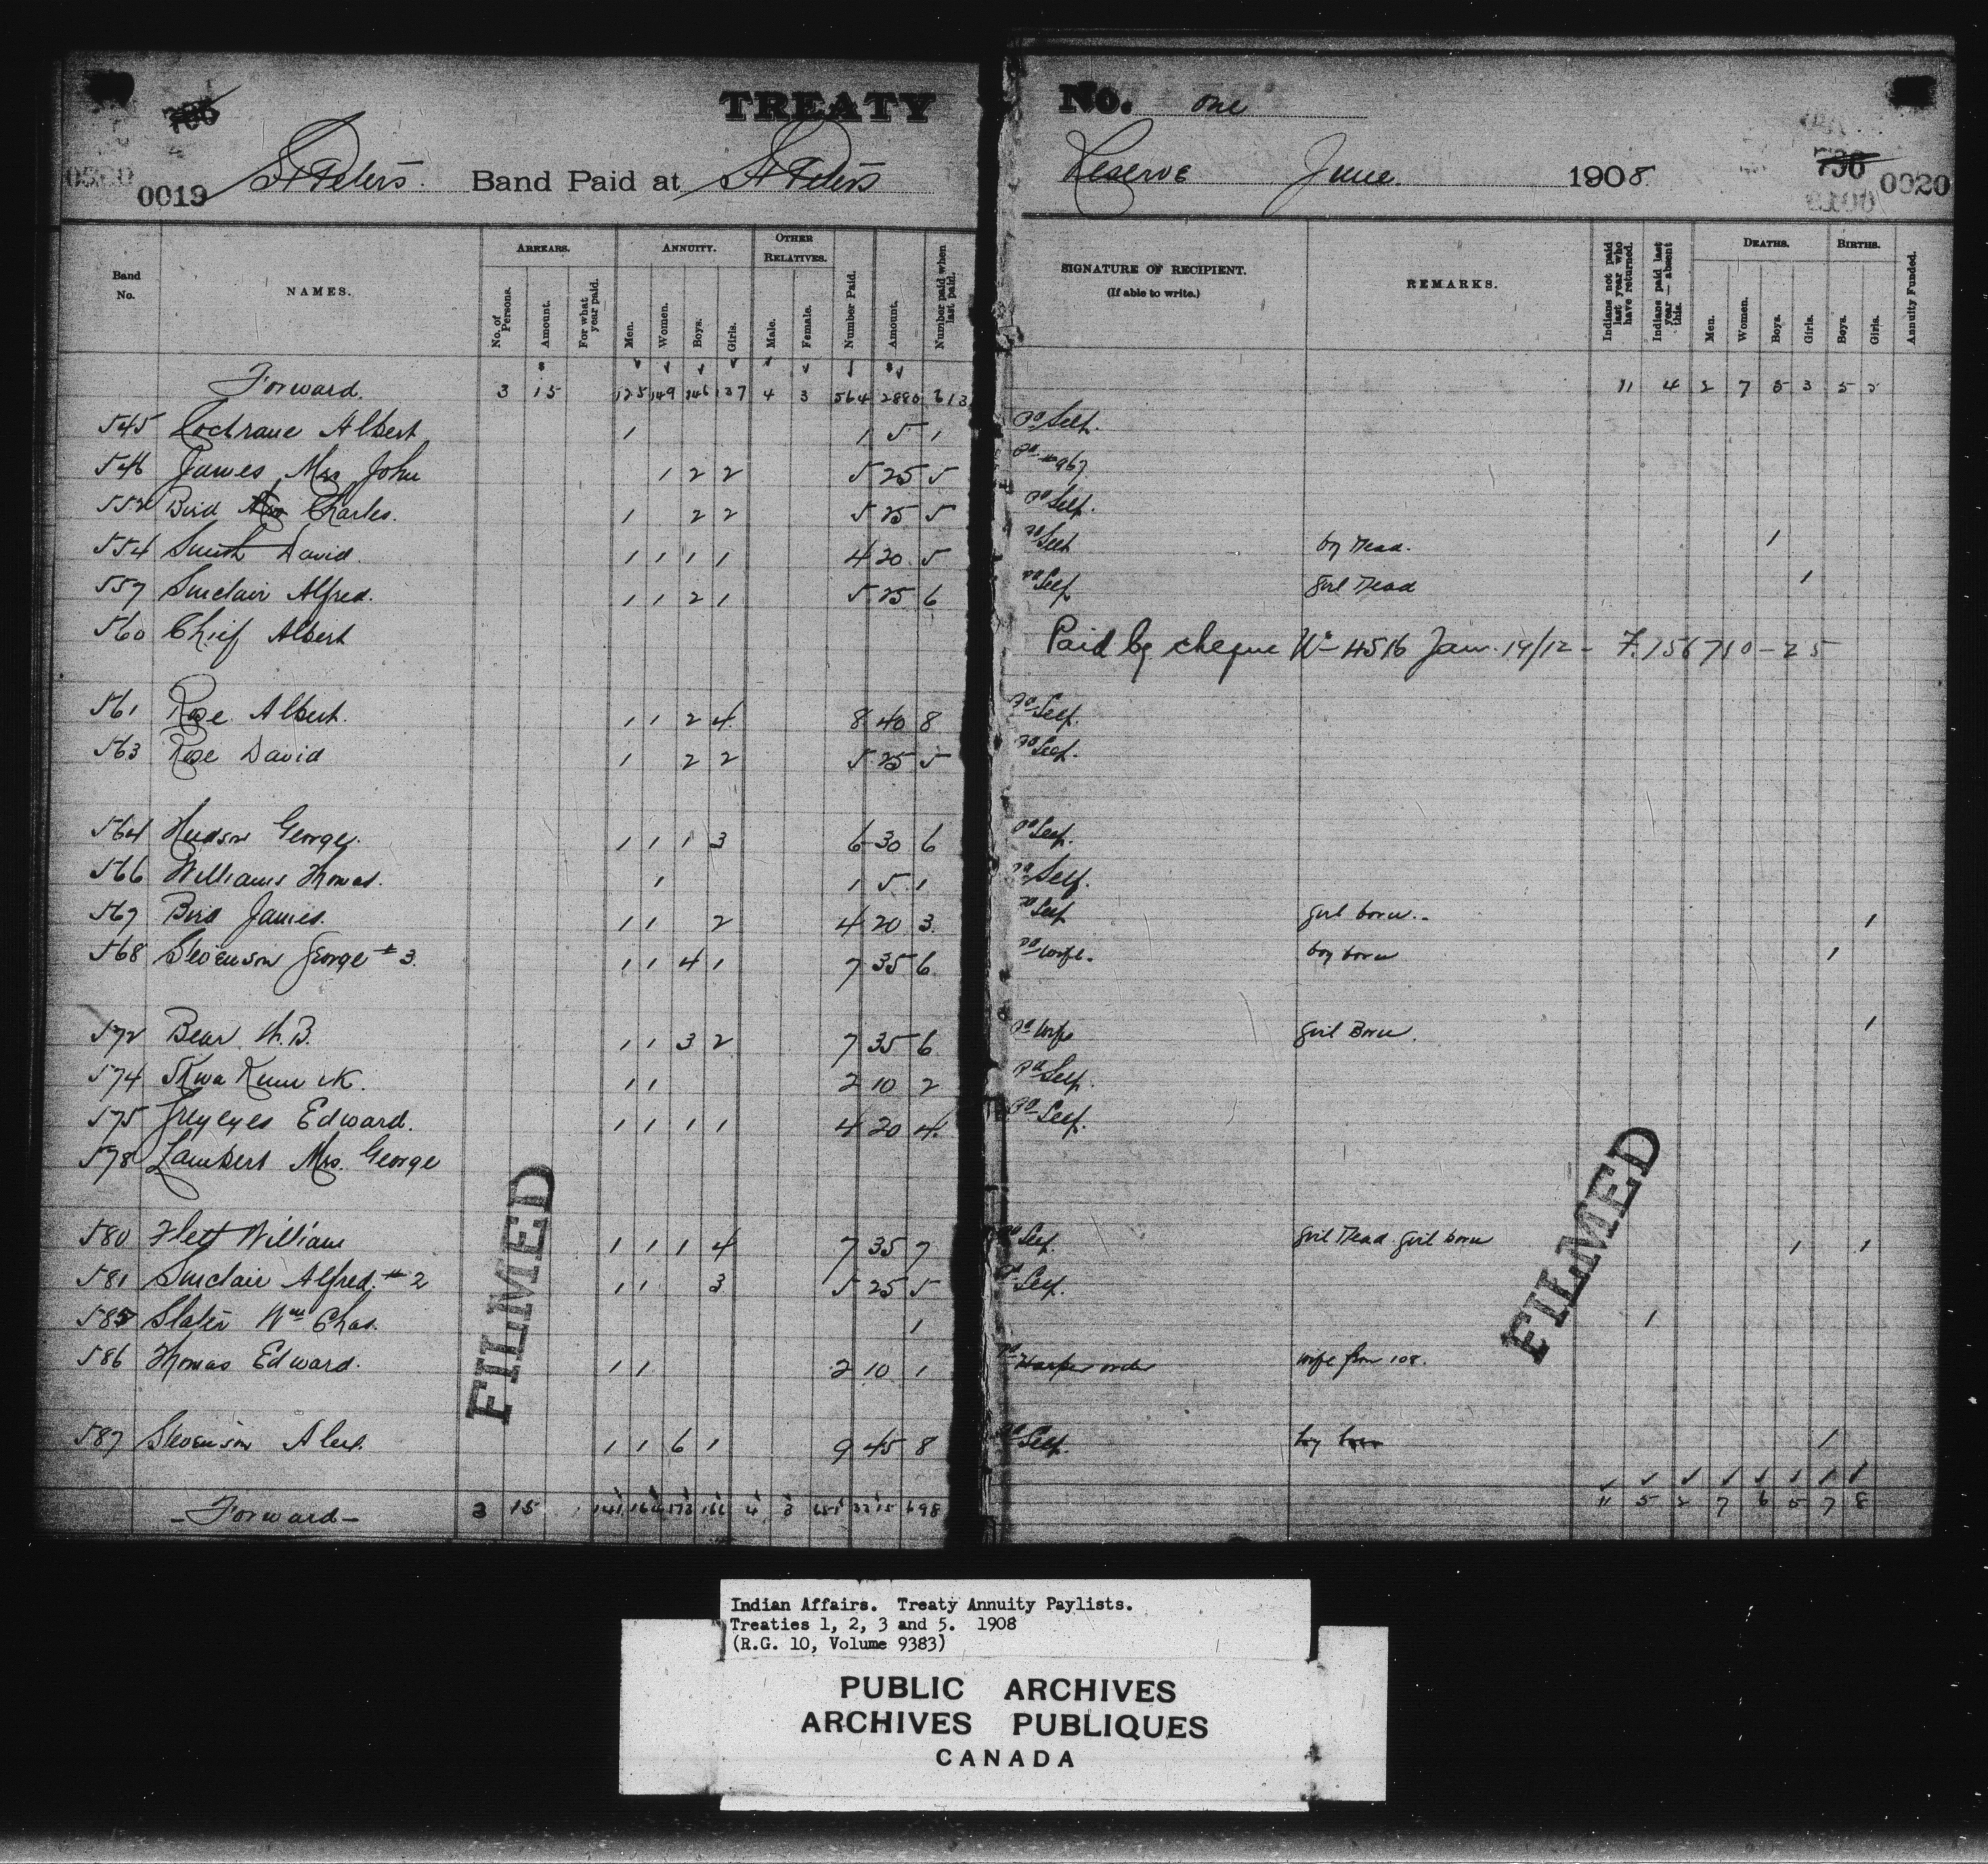 TREATY No. one
0019 St Peters. Band Paid at St Peters Reserve June. 1908 0020
Band No. NAMES. ARREARS. No. of Persons. Amount. For what year paid. ANNUITY. Men. Women. Boys. Girls. OTHER RELATIVES. Male. Female. Number Paid. Amount. Number paid when last paid. SIGNATURE OF RECIPIENT. (If able to write.) REMARKS. Indians not paid last year who have returned. Indians paid last year — absent this. DEATHS. Men. Women. Boys. Girls. BIRTHS. Boys. Girls. Annuity Funded.
Forward. 3 15 125 149 146 137 4 3 564 2880 613 11 4 2 7 5 3 5 5
545 Cochrane Albert 1 1 5 1 Pd Self.
546 James, Mrs John 1 2 2 5 25 5 Pd #967
552 Bird Charles. 1 2 2 5 25 5 Pd Self.
554 Smith David. 1 1 1 1 4 20 5 Pd Self boy Dead. 1
557 Sinclair Alfred. 1 1 2 1 5 25 6 Pd Self girl Dead 1
560 Chief Albert Paid by cheque No 4516 Jan. 19/12 - F. 156710-25
561 Rose Albert. 1 1 2 4 8 40 8 Pd Self.
563 Rose David 1 2 2 5 25 5 Pd Self.
564 Hudson George. 1 1 1 3 6 30 6 Pd Self.
566 Williams Thomas. 1 1 5 1 Pd Self.
567 Bird James. 1 1 2 4 20 3 Pd Self girl born. 1
568 Stevenson George #3. 1 1 4 1 7 35 6 Pd wife. boy born 1
572 Bear W.B. 1 1 3 2 7 35 6 Pd wife girl Born. 1
574 1 1 2 10 2 Pd Self.
575 Greyeyes Edward. 1 1 1 1 4 20 4 Pd Self.
578 Lambert Mrs. George
580 Flett William 1 1 1 4 7 35 7 Pd Self girl Dead girl born 1 1
581 Sinclair Alfred. #2 1 1 3 5 25 5 Pd Self.
585 Slater Wm Chas. 1 1
586 Thomas Edward. 1 1 2 10 1 Pd Harper order wife from 108.
587 Stevenson Alex. 1 1 6 1 9 45 8 Pd Self. boy born 1
Forward 3 15 141 164 173 166 4 3 651 3215 698 11 5 2 7 6 5 7 8
FILMED
FILMED
Indian Affairs. Treaty Annuity Paylists.
Treaties 1, 2, 3 and 5. 1908
(R.G. 10, Volume 9383)
PUBLIC ARCHIVES
ARCHIVES PUBLIQUES
CANADA